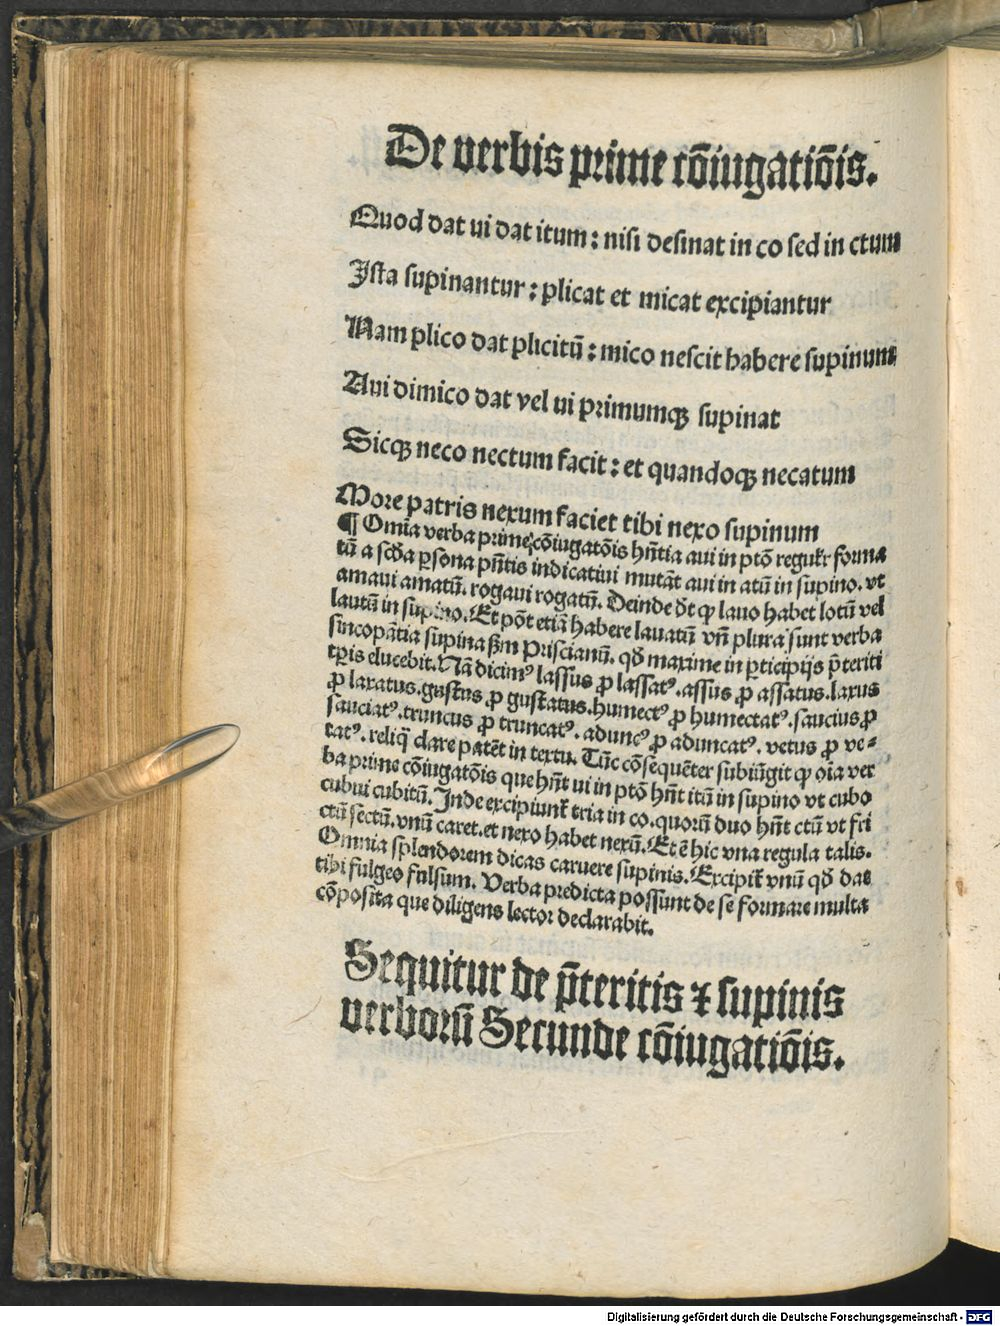 De verbis prime cōiugatiōis.
Quod dat ui dat itum : nisi desinat in co sed in ctum
Ista supinantur : plicat et micat excipiantur
Nam plico dat plicitū : mico nescit habere supinum
Aui dimico dat vel ui primumqꝫ supinat
Sicqꝫ neco nectum facit : et quandoqꝫ necatum
More patris nexum faciet tibi nexo supinum
¶ Omīa verba prime cōiugatōis hn̄tia aui in ptō regul'r forma
tū a scḋa ꝑsona pn̄tis indicatiui mutāt aui in atū in supino. vt
amaui amatū. rogaui rogatū. Deinde dt̄ ꝙ lauo habet lotū vel
lautū in supino. Et pōt etiā habere lauatū vn̄ plura sunt verba
sincopātia supina ẜm Priscianū. qḋ maxime in ꝑticipijs p̄teriti
tꝑis elucebit. Nā dicimꝰ lassus ꝓ lassatꝰ. assus ꝓ assatus. laxus
ꝓ laxatus. gustus ꝓ gustatus. humectꝰ ꝓ humectatꝰ. saucius ꝓ
sauciatꝰ. truncus ꝓ truncatꝰ. aduncꝰ ꝓ aduncatꝰ. vetus ꝓ ve-
tatꝰ. reliq̄ clare patēt in textu. Tūc cōsequēter subiūgit ꝙ oīa ver
ba prime cōiugatōis que hn̄t ui in ptō hn̄t itū in supino vt cubo
cubui cubitū. Inde excipiunt̄ tria in co. quorū duo hn̄t ctū vt fri
ctū sectū. vnū caret. et nexo habet nexū. Et ē hic vna regula talis.
Omnia splendorem dicas caruere supinis. Excipit̄ vnū qḋ dat
tibi fulgeo fulsum. Verba predicta possunt de se formare multa
cōposita que diligens lector declarabit.
Sequitur de p̄teritis ⁊ supinis
verborū Secunde cōiugatiōis.
Digitalisierung gefördert durch die Deutsche Forschungsgemeinschaft - DFG